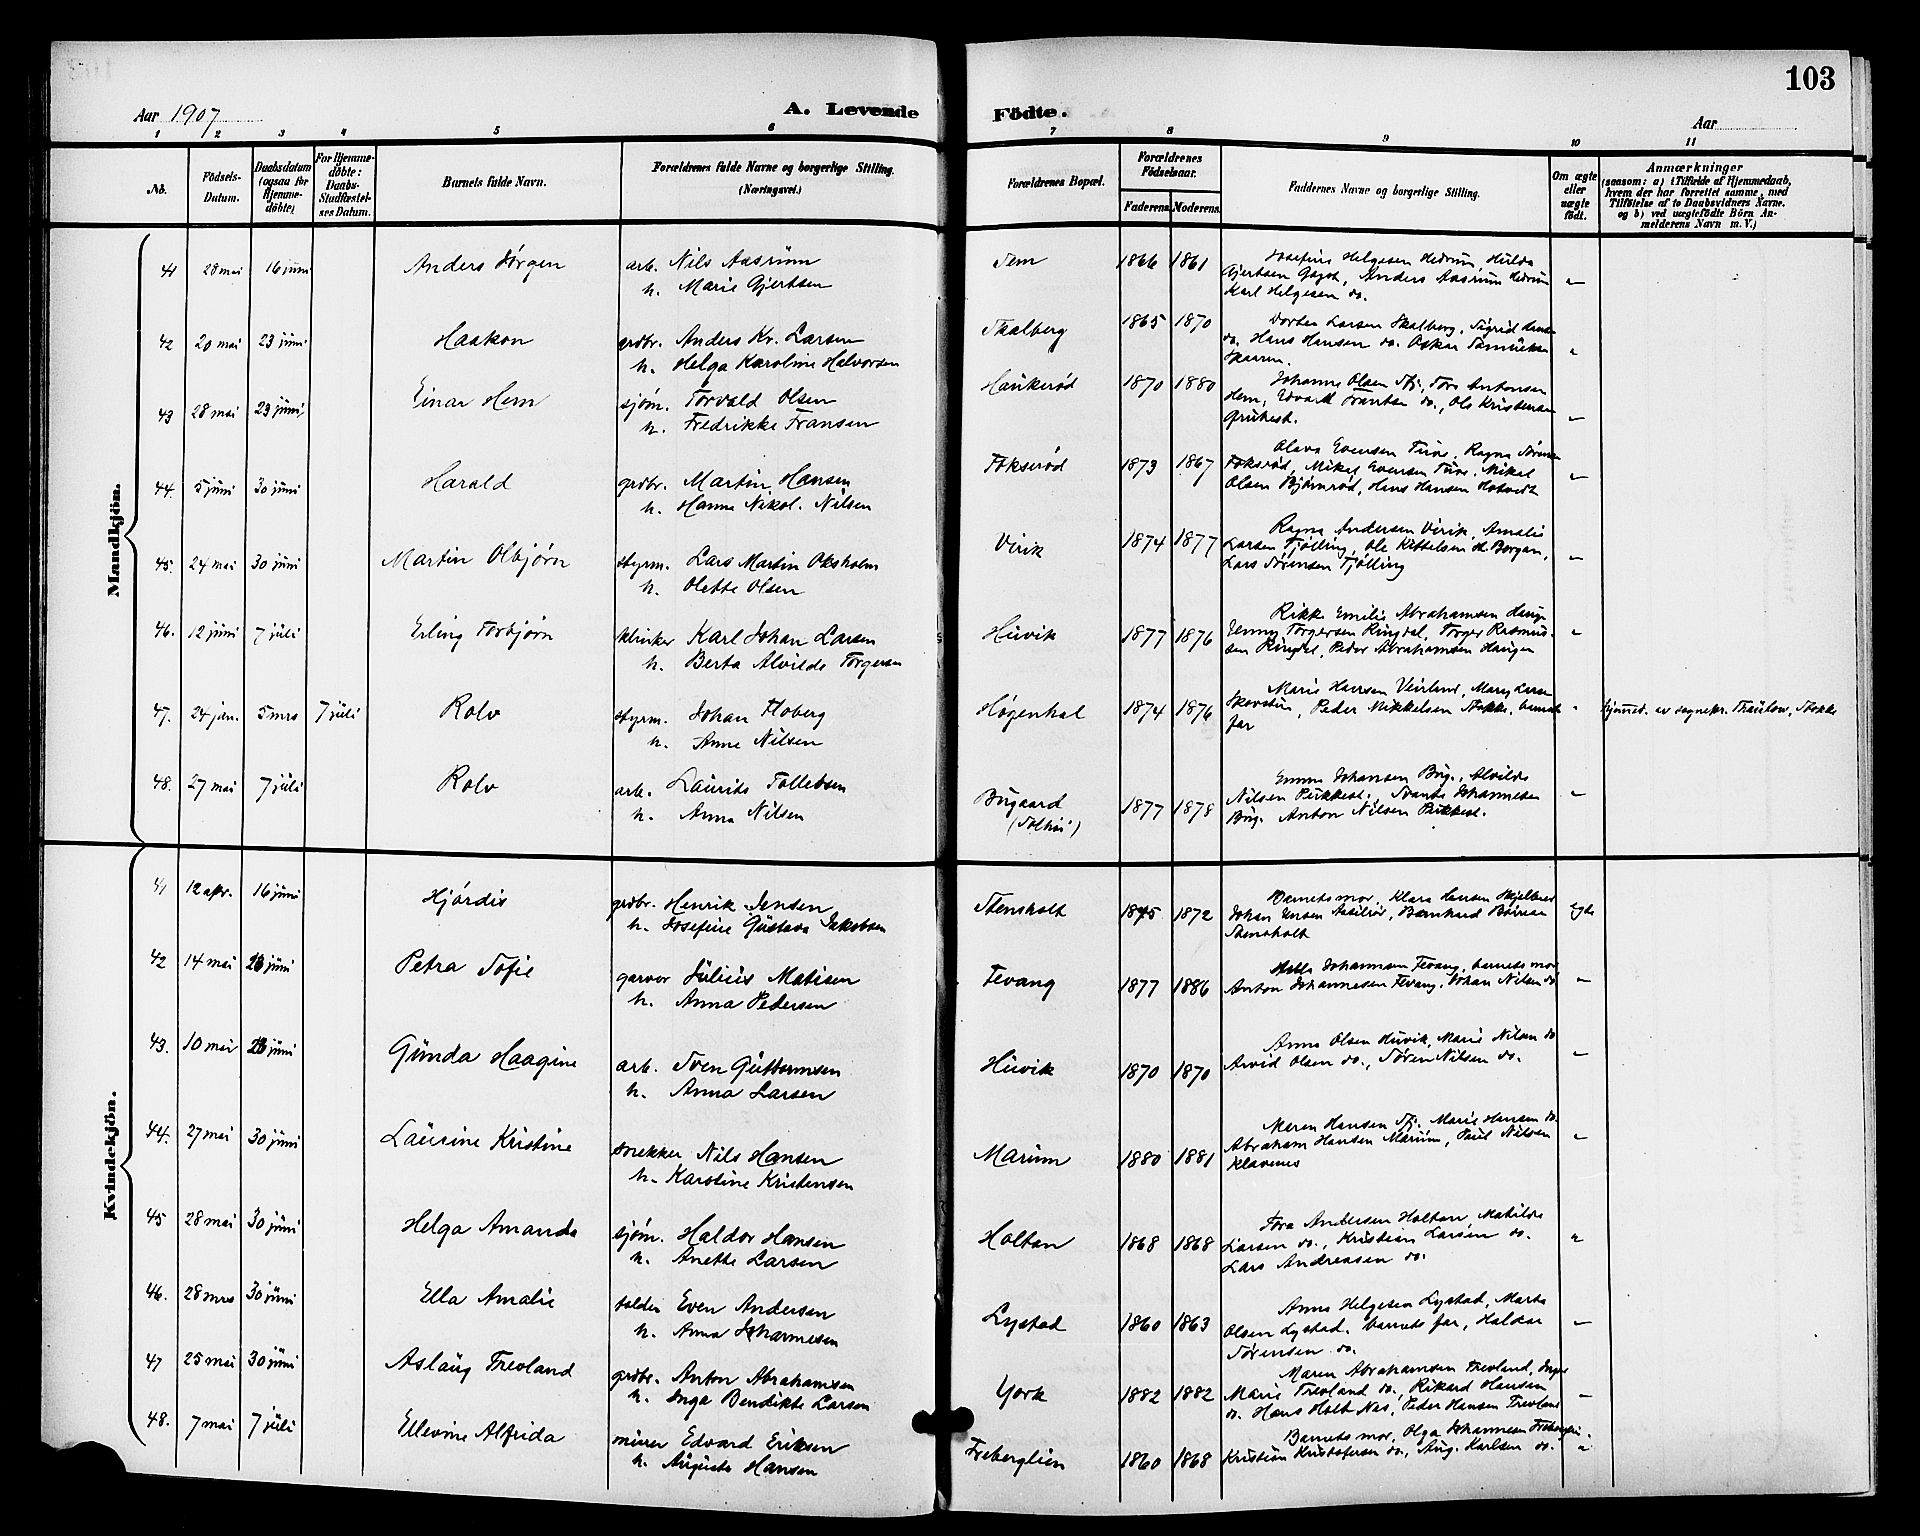 103
Aar 1907
A. Levende
Födte.
Aar
1 2 3 4 5 6 7 8 9 10 11
No.
Födsels-Datum.
Daabsdatum (ogsaa for Hjemme-döbte)
For Hjemme-döbte: Daabs-Stadfæstel-ses Datum.
Barnets fulde Navn.
Forældrenes fulde Navne og borgerlige Stilling.
(Næringsvei.)
Forældrenes Bopæl.
Forældrenes Födselsaar.
Faderens. Moderens.
Faddernes Navne og borgerlige Stilling.
Om ægte eller uægte födt.
Anmærkninger
(saasom: a) i Tilfælde af Hjemmedaab,
hvem der har forrettet samme, med
Tilföielse af to Daabsvidners Navne.
og b) ved uægtefödte Börn An-
melderens Navn m. V.)
Mandkjön.
41 28 mai 16 juni Anders Jørgen arb. Nils Aasrum Tem 1866 1861 Josefine Helgesen Hedrum, Hulda
h. Marie Gjertsen Gjertsen, Anders Aasrum Hedrum "
Karl Helgesen do.
42 20 mai 23 juni Haakon grdbr. Anders Kr. Larsen Skalberg 1865 1870 Dorthea Larsen Skalberg, Sigrid
h. Helga Karoline Halvorsen do. Hans Hansen do. Oskar "
43 28 mai 23 juni Einar Hem sjøm. Torvald Olsen Haukerød 1870 1880 Johanne Olsen Sfj., Tora Antonsen
h. Fredrikke Fransen Hem, Edvard Frantsen do., Ole Kristensen "
44. 5 juni 30 juni Harald grdbr. Martin Hansen Fokserød 1873 1867 Olava Evensen, Ragna
h. Hanna Nikol. Nilsen Fokserød, Mikal Evensen, Mikal "
Olsen Bjørnerød, Hans Hansen Hotvedt
45. 24 mai 30 juni Martin Olbjørn styrm. Lars Martin Oksholm Virik 1874 1877 Ragna Andersen Virik, Amalie
h. Olette Olsen Larsen Tjølling, Ole Kittelsen Borgen, "
Lars Sørensen Tjølling
46. 12 juni 7 juli Erling Torbjørn klinker Karl Johan Larsen Huvik 1877 1876 Rikke Emilie Abrahamsen Haugen
h. Berta Alvilde Torgersen Jenny Torgersen Ringdal, Torger Rasmus- "
sen Ringdal, Peder Abrahamsen Haugen
47. 24 jan. 5 mrs 7 juli Rolv styrm. Johan Floberg Høgenhal 1874 1876 Marie Hansen, Mary Larsen
h. Anne Nilsen Peder Mikkelsen Stokke, barnets " hjemmed. av sognepr. Stokke
far
48. 27 mai 7 juli Rolv arb. Laurits Tollefsen Bugaard 1877 1878 Emma Johansen Bug., Alvilde
h. Anna Nilsen Nilsen Pukkest. Johannesen "
Bug. Anton Nilsen Pukkest.
Kvindekjön.
41 12 apr. 16 juni Hjørdis grdbr. Henrik Jensen Stensholt 1875 1872 Barnets mor, Klara Hansen
h. Josefine Gustava Jakobsen Johan Jensen, Bernhard ægte
Stensholt
42 14 mai 23 juni Petra Sofie garver Julius Matisen Fevang 1877 1886 Johannesen Fevang, barnets mor
h. Anna Pedersen Anton Johannesen Fevang, Johan Nilsen do "
43. 10 mai 23 juni Gunda Haagine arb. Sven Guttormsen Huvik 1870 1870 Anna Olsen Huvik, Marie Nilsen do
h. Anna Larsen Arvid Olsen do., Søren Nilsen do. "
44. 27 mai 30 juni Laurine Kristine snekker Nils Hansen Marum 1880 1881 Maren Hansen Sfj. Marie Hansen do.
h. Karoline Kristensen Abraham Hansen Marum, Paul Nilsen "
Klavenes
45 28 mai 30 juni Helga Amanda sjøm. Haldor Hansen Holtan 1868 1868 Tora Andersen Holtan, Matilde
h. Anette Larsen Larsen do., Kristian Larsen do. "
Lars Andreasen do.
46. 28 mrs 30 juni Ella Amalie Even Andersen Lystad 1860 1863 Anna Helgesen Lystad, Marta
h. Anna Johannesen Olsen Lystad, barnets far, Haldor "
Sørensen do.
47 25 mai 30 juni Aslaug Trevland grdbr. Anton Abrahamsen York 1882 1882 Maren Abrahamsen Trevland, Inger
h. Inga Bendikte Larsen Marie Trevland do., Rikard Hansen "
do. Hans Holt Nes, Peder Hansen Trevland
48. 7 mai 7 juli Ellevine Alfrida murer Edvard Eriksen Freberglien 1860 1868 Barnets mor, Olga Johannesen
h. Augusta Hansen Kristian Kristofersen do., Aug. Karlsen do. "